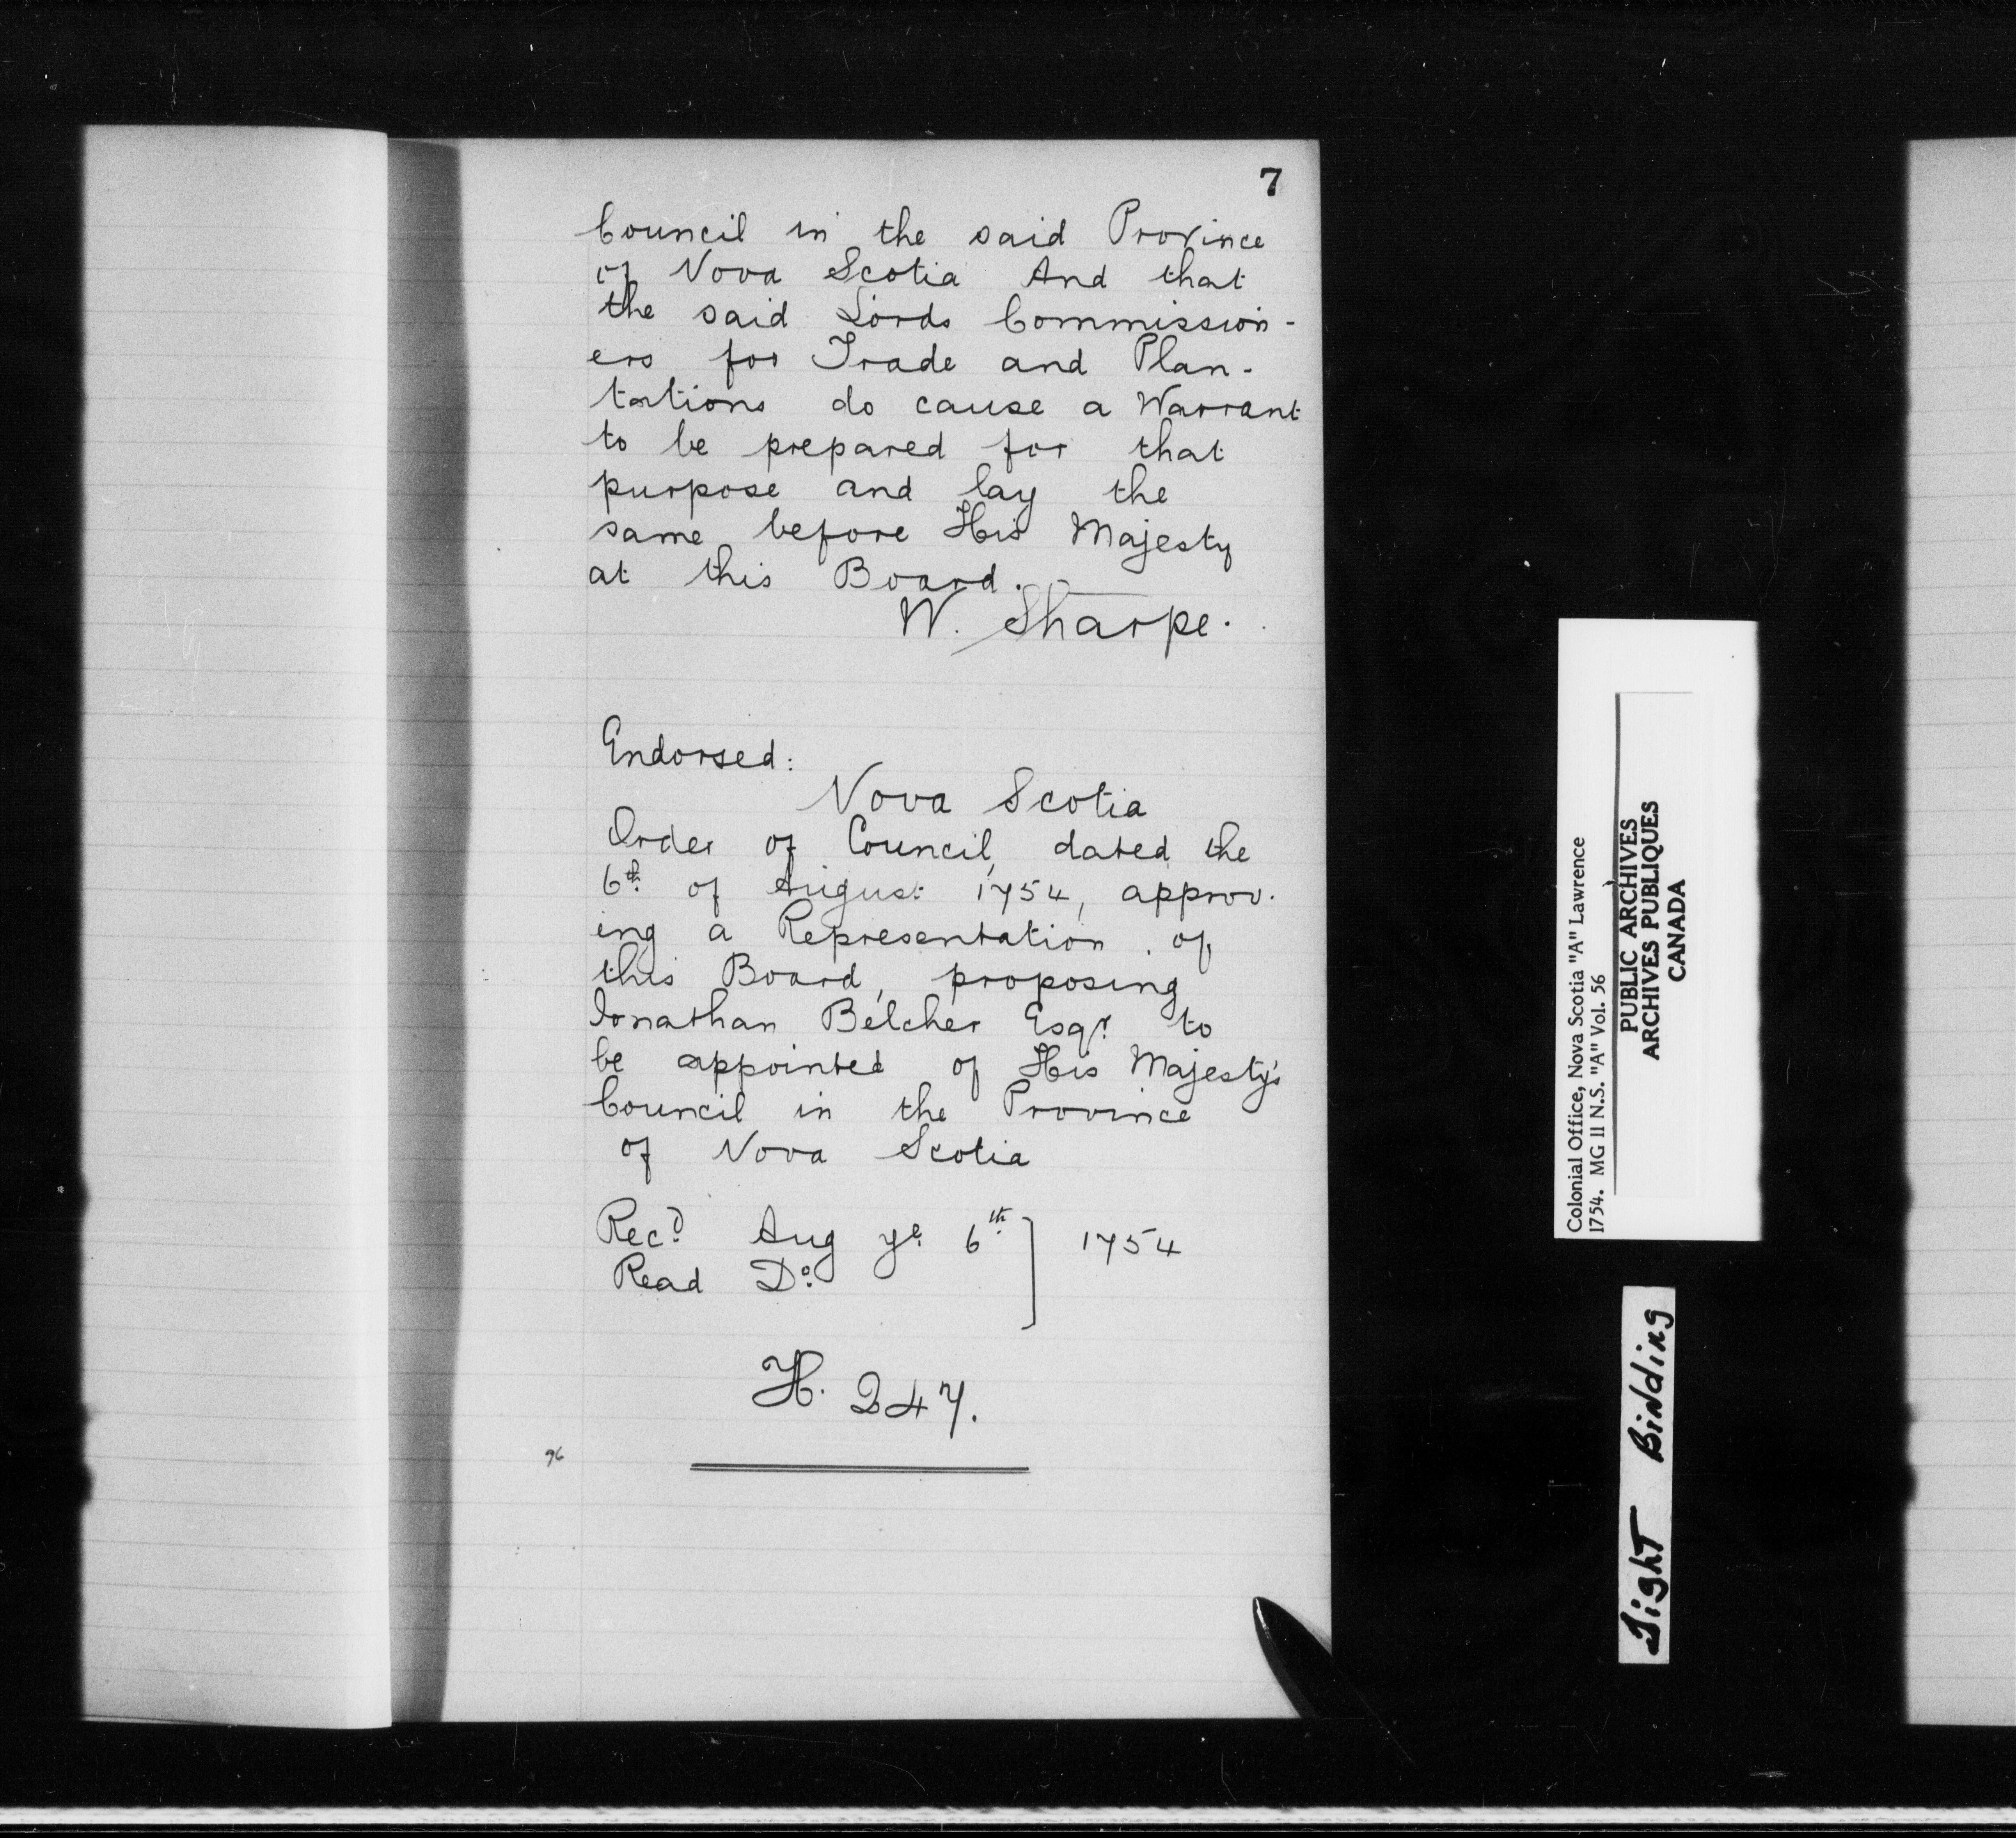 7
Council in the said Province
of Nova Scotia And that
the said Lords Commission-
ers for Trade and Plan-
tations do cause a Warrant
to be prepared for that
purpose and lay the
same before His Majesty
at this Board.
W. Sharpe.
Endorsed:
Nova Scotia
Order of Council, dated the
6th of August 1754, approv-
ing a Representation of
this Board, proposing
Jonathan Belcher Esqr to
be appointed of His Majesty's
Council in the Province
of Nova Scotia
Recd Aug ye 6th ] 1754
Read Do
H. 247.
96
Colonial Office, Nova Scotia "A" Lawrence
1754. MG 11 N.S. "A" Vol. 56
PUBLIC ARCHIVES
ARCHIVES PUBLIQUES
CANADA
Tight Binding